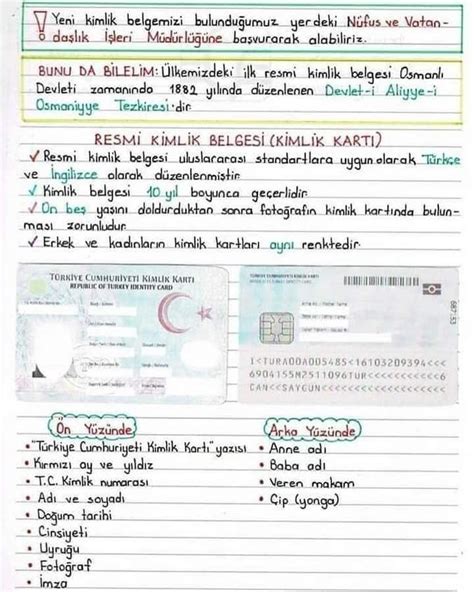 Yeni kimlik belgemizi bulunduğumuz yerdeki Nüfus ve Vatan-
daşlık İşleri Müdürlüğüne başvurarak alabiliriz.
BUNU DA BİLELİM: Ülkemizdeki ilk resmi kimlik belgesi Osmanlı
Devleti zamanında 1882 yılında düzenlenen Devlet-i Aliyye-i
Osmaniyye Tezkiresi'dir
RESMİ KİMLİK BELGESİ (KİMLİK KARTI)
✓ Resmi kimlik belgesi uluslararası standartlara uygun olarak Türkçe
ve İngilizce olarak düzenlenmiştir
✓ Kimlik belgesi 10 yıl boyunca geçerlidir
✓ On beş yaşını doldurduktan sonra fotoğrafın kimlik kartında bulun-
ması zorunludur
✓ Erkek ve kadınların kimlik kartları aynı renktedir
TÜRKİYE CUMHURİYETİ KİMLİK KARTI
REPUBLIC OF TURKEY IDENTITY CARD
TÜRKİYE CUMHURİYETİ KİMLİK KARTI
REPUBLIC OF TURKEY IDENTITY CARD
I<TURA00A005485<16103209394<<<
6904155M2511096TUR<<<<<<<<<<<6
CAN<<SAYGUN<<<<<<<<<<<<<<<<<<<
Ön Yüzünde
• "Türkiye Cumhuriyeti Kimlik Kartı" yazısı
• Kırmızı ay ve yıldız
• T.C. Kimlik numarası
• Adı ve soyadı
• Doğum tarihi
• Cinsiyeti
• Uyruğu
• Fotoğraf
• İmza
Arka Yüzünde
• Anne adı
• Baba adı
• Veren makam
• Çip (yonga)